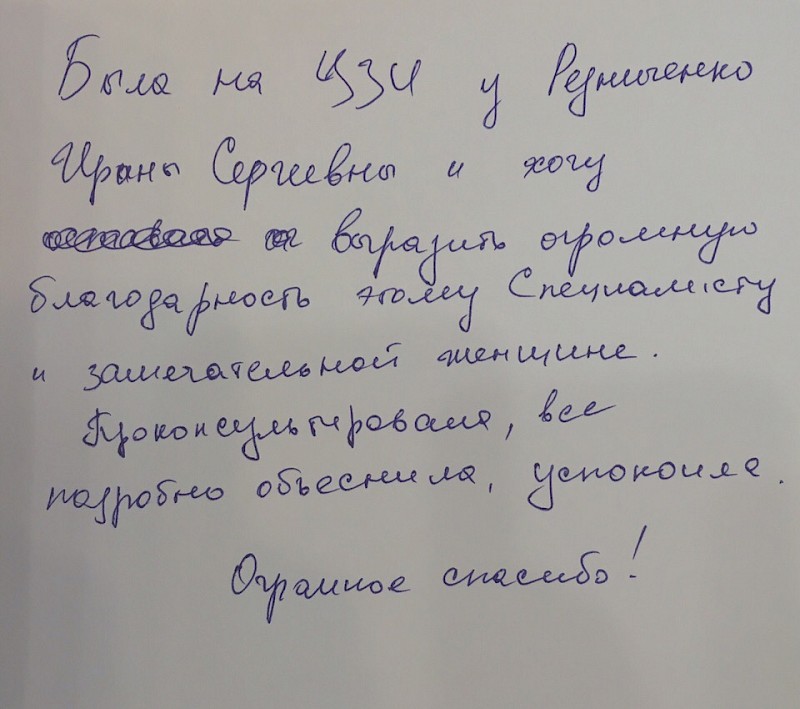 Была на УЗИ у Резниченко
Ирины Сергеевны и хочу
выразить огромную
благодарность этому Специалисту
и замечательной женщине.
Проконсультировала, все
подробно объеснила, успокоила.
Огромное спасибо!